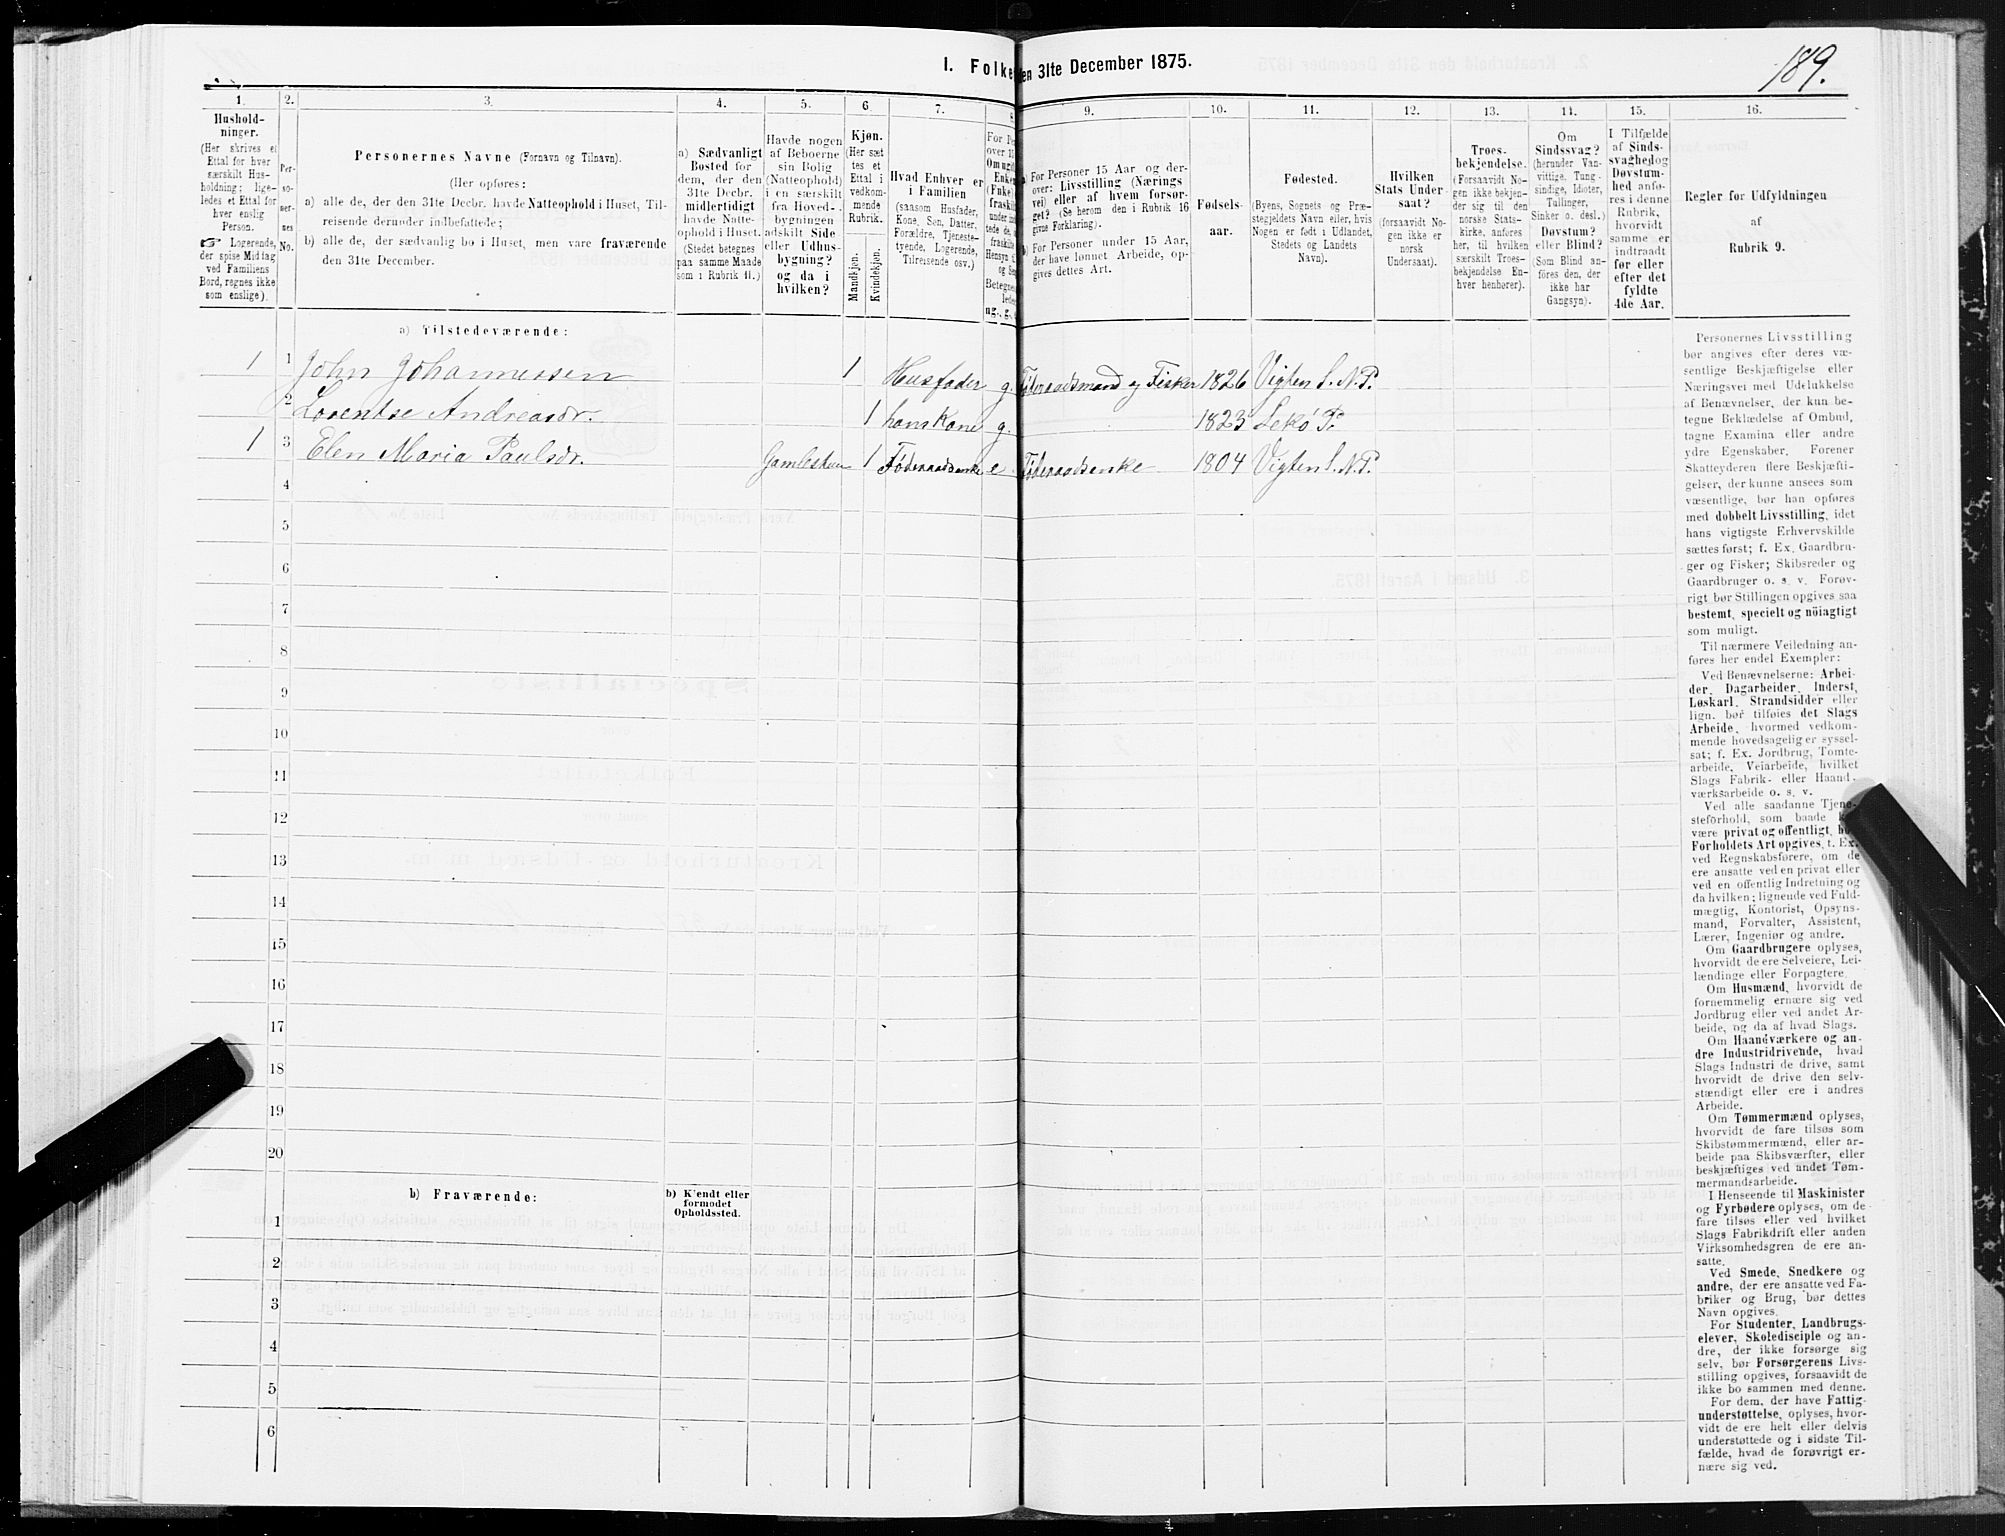 I. Folke en 31te December 1875.
189.
1.
2.
3.
4.
5.
6.
7.
8.
9.
10.
11.
12.
13.
14.
15.
16.
Hushold-
ninger.
(Her skrives et
Ettal for hver
særskilt Hus-
holdning; lige-
ledes et Ettal for
hver enslig
Person.
☞ Logerende,
der spise Middag
ved Familiens
Bord, regnes ikke
som enslige).
Per-
so-
ner-
nes
No.
Personernes Navne (Fornavn og Tilnavn).
(Her opføres:
a) alle de, der den 31te Decbr. havde Natteophold i Huset, Til-
reisende derunder indbefattede;
b) alle de, der sædvanlig bo i Huset, men vare fraværende
den 31te December.
a) Sædvanligt
Bosted for
dem, der den
31te Decbr.
midlertidigt
havde Natte-
ophold i Huset.
(Stedet betegnes
paa samme Maade
som i Rubrik 11.)
Havde nogen
af Beboerne
sin Bolig
(Natteophold)
i en særskilt
fra Hoved-
bygningen
adskilt Side
eller Udhus-
bygning?
og da i
hvilken?
Kjøn.
(Her sæt
tes et
Ettal i
vedkom-
mende
Rubrik.
Mandkjøn.
Kvindekjøn.
Hvad Enhver er
i Familien
(saasom Husfader,
Kone, Søn, Datter,
Forældre, Tjeneste-
tyende, Logerende,
Tilreisende osv.)
For Pe
over 15
Om ugift
Enkem
(Enke)
fraskilt
a) For Personer 15 Aar og der-
over: Livsstilling (Nærings
vei) eller af hvem forsør-
get? (Se herom den i Rubrik 16
givne Forklaring).
b) For Personer under 15 Aar,
der have lønnet Arbeide, op-
gives dettes Art.
Fødsels-
aar.
Fødested.
(Byens, Sognets og Præ-
stegjeldets Navn eller, hvis
Nogen er født i Udlandet,
Stedets og Landets
Navn).
Hvilken
Stats Under-
saat?
(forsaavidt No-
gen ikke er
norsk
Undersaat).
Troes-
bekjendelse.
(Forsaavidt No-
gen ikke bekjen-
der sig til den
norske Stats-
kirke, anføres
her, til hvilken
særskilt Troes-
bekjendelse En-
hver henhører).
Om
Sindssvag?
(herunder Van-
vittige, Tung-
sindige, Idioter,
Tullinger,
Sinker o. desl.)
Døvstum?
eller Blind?
(Som Blind an-
føres den, der
ikke har
Gangsyn).
I Tilfælde
af Sinds-
svaghed og
Døvstum-
hed anfø-
res i denne
Rubrik,
hvorvidt
samme er
indtraadt
før eller
efter det
fyldte
4de Aar.
Regler før Udfyldningen
af
Rubrik 9.
a) Tilstedeværende:
1 1 John Johannessen 1 Husfader g. Føderaadsmand og Fisker 1826 Vigten S. N. P.
2 Lorentse Andreasdr. 1 hans Kone g. 1823 Lekø P.
1 3 Elen Maria Paulsdr. Gamlestuen 1 Føderaadsenke e. Føderaadsenke 1804 Vigten S. N. P.
4
5
6
7
8
9
10
11
12
13
14
15
16
17
18
19
20
b) Fraværende:
b) Kjendt eller
formodet
Opholdssted.
1
2
3
4
5
6
Personernes Livsstilling
bør angives efter deres væ-
sentlige Beskjæftigelse eller
Næringsvei med Udelukkelse
af Benævnelser, der kun be-
tegne Beklædelse af Ombud,
tagne Examina eller andre
ydre Egenskaber. Forener
Skatteyderen flere Beskjæfti-
gelser, der kunne ansees som
væsentlige, bør han opføres
med dobbelt Livsstilling, idet
hans vigtigste Erhvervskilde
sættes først; f. Ex. Gaardbru-
ger og Fisker; Skibsreder og
Gaardbruger o. s. v. Forøv-
rigt bør Stillingen opgives saa
bestemt, specielt og nöiagtigt
som muligt.
Til nærmere Veiledning an-
føres her endel Exempler:
Ved Benævnelserne: Arbei-
der, Dagarbeider, Inderst,
Løskarl, Strandsidder eller
lign. bør tilføies det Slags
Arbeide, hvormed vedkom-
mende hovedsagelig er syssel-
sat; f. Ex. Jordbrug, Tomte-
arbeide, Veiarbeide, hvilket
Slags Fabrik- eller Haand-
værksarbeide o. s. v.
Ved alle saadanne Tjene-
steforhold, som baade k
være privat og offentligt, bø
Forholdets Art opgives, f. Ex.
ved Regnskabsførere, om de
ere ansatte ved en privat eller
ved en offentlig Indretning og
da hvilken; lignende ved Fuld-
mægtig, Kontorist, Opsyns-
mand, Forvalter, Assistent,
Lærer, Ingeniør og andre.
Om Gaardbrugere oplyses,
hvorvidt de ere Selveiere, Lei-
lændinge eller Forpagtere.
Om Husmænd, hvorvidt de
fornemmelig ernære sig ved
Jordbrug eller ved andet Ar-
beide, og da af hvad Slags.
Om Haandværkere og an-
dre Industridrivende, hvad
Slags Industri de drive, samt
hvorvidt de drive den selv-
stændigt eller ere i andres
Arbeide.
Om Tømmermænd oplyses,
hvorvidt de fare tilsøs som
Skibstømmermænd, eller ar-
beide paa Skibsværfter, eller
beskjæftiges ved andet Tøm-
mermandsarbeide.
I Henseende til Maskinister
og Fyrbødere oplyses, om de
fare tilsøs eller ved hvilket
Slags Fabrikdrift eller anden
Virksomhedsgren de ere an-
satte.
Ved Smede, Snedkere og
andre, der ere ansatte ved Fa-
briker og Brug, bør dettes
Navn opgives.
For Studenter, Landbrugs-
elever, Skoledisciple og an-
dre, der ikke forsørge sig
selv, bør Forsørgerens Livs-
stilling opgives, forsaavidt de
ikke bo sammen med denne.
For dem, der have Fattig-
understøttelse, oplyses, hvor-
vidt de ere helt eller delvis
understøttede og i sidste Til-
fælde, hvad de forøvrigt er-
nære sig ved.